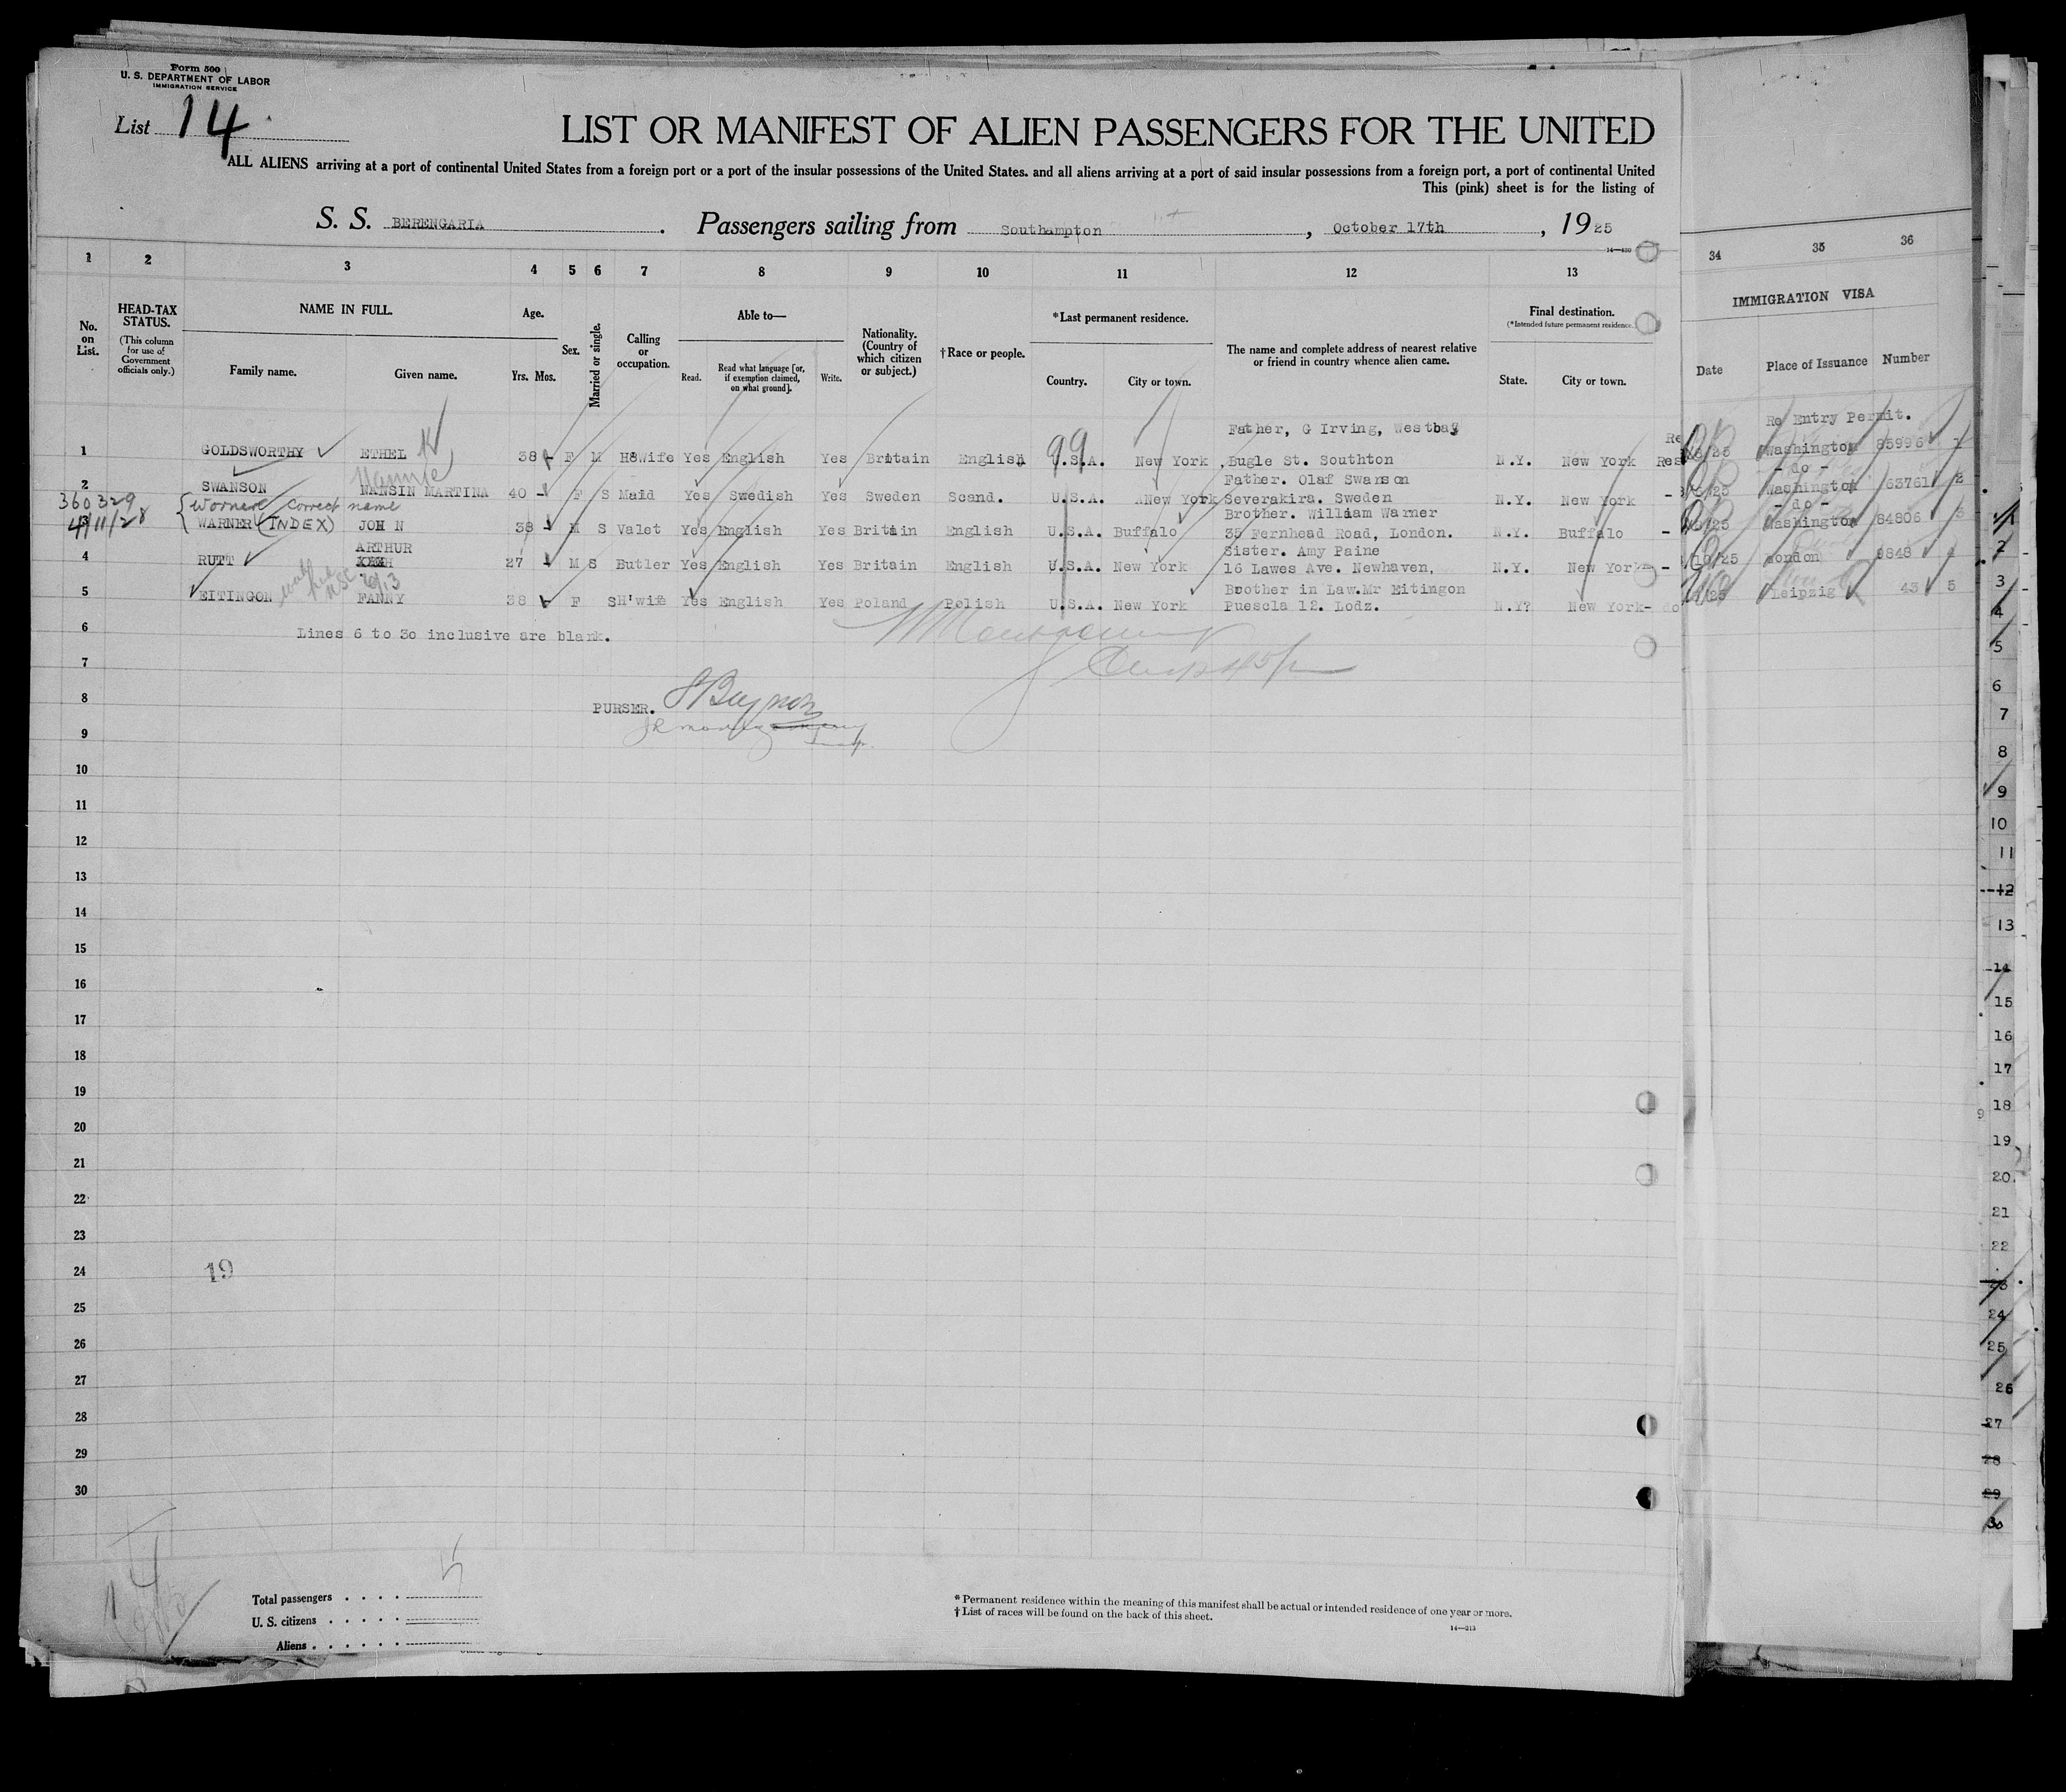 Form 500
U. S. DEPARTMENT OF LABOR
IMMIGRATION SERVICE
List 14
LIST OR MANIFEST OF ALIEN PASSENGERS FOR THE UNITED
ALL ALIENS arriving at a port of continental United States from a foreign port or a port of the insular possessions of the United States, and all aliens arriving at a port of said insular possessions from a foreign port, a port of continental United
This (pink) sheet is for the listing of
S. S. BERENGARIA. Passengers sailing from Southampton, October 17th, 1925
14—430
1 2 3 4 5 6 7 8 9 10 11 12 13 34 35 36
No. on List.
HEAD-TAX STATUS.
(This column for use of Government officials only.)
NAME IN FULL.
Family name. Given name.
Age.
Yrs. Mos.
Sex.
Married or single.
Calling or occupation.
Able to—
Read. Read what language [or, if exemption claimed, on what ground]. Write.
Nationality. (Country of which citizen or subject.)
†Race or people.
*Last permanent residence.
Country. City or town.
The name and complete address of nearest relative or friend in country whence alien came.
Final destination.
(*Intended future permanent residence.
State. City or town.
IMMIGRATION VISA
Date Place of Issuance Number
Re Entry Permit.
Father, G Irving, Westbay
1 GOLDSWORTHY ETHEL 38 - F M H8Wife Yes English Yes Britain English U.S.A. New York, Bugle St. Southton N.Y. New York Res Washington 85996 1
99
Nannie
- do -
Father. Olaf Swanson
2 SWANSON NANSIN MARTINA 40 - F S Maid Yes Swedish Yes Sweden Scand. U.S.A. New York Severakira. Sweden N.Y. New York - Washington 63761 2
360329 Worner correct name
4/11/28
- do -
Brother. William Warner
3 WARNER (INDEX) JOHN 38 - M S Valet Yes English Yes Britain English U.S.A. Buffalo 35 Fernhead Road, London. N.Y. Buffalo - Washington 84806 3
ARTHUR
Sister. Amy Paine
4 RUTT 27 - M S Butler Yes English Yes Britain English U.S.A. New York 16 Lawes Ave. Newhaven, N.Y. New York - London 9848 4
Brother in Law.Mr Eitingon
5 EITINGON FANNY 38 F S H'wife Yes English Yes Poland Polish U.S.A. New York Puescla 12. Lodz. N.Y? New York- do Leipzig 43 5
6 Lines 6 to 30 inclusive are blank.
7
8 PURSER.
9
10
11
12
13
14
15
16
17
18
19
20
21
22
23
24 19
25
26
27
28
29
30
2
3
4
5
6
7
8
9
10
11
12
13
14
15
16
17
18
19
20
21
22
23
24
25
26
27
28
29
30
14
Total passengers 5
U. S. citizens
Aliens
* Permanent residence within the meaning of this manifest shall be actual or intended residence of one year or more.
† List of races will be found on the back of this sheet.
14—213